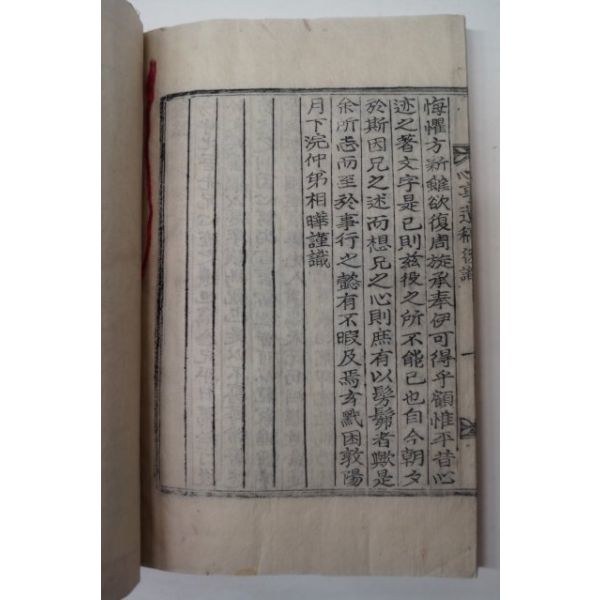 心亭遺稿後識 一
悔懼方新雖欲復周旋承奉伊可得乎顧惟平昔心
迹之著文字是已則玆役之所不能已也自今朝夕
於斯因兄之述而想兄之心則庶有以髣髴者歟是
余所志而至於事行之懿有不暇及焉玄黓困敦陽
月下浣仲弟相曄謹識